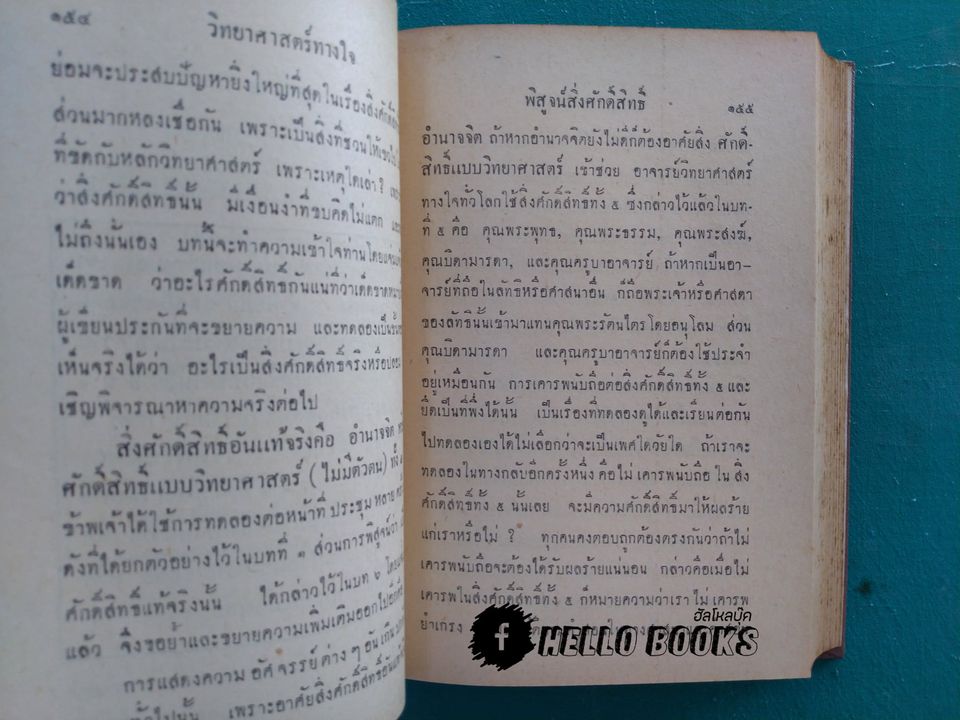 ๑๕๔
วิทยาศาสตร์ทางใจ
ย่อมจะประสบปัญหายิ่งใหญ่ที่สุดในเรื่องสิ่งศักดิ์
ส่วนมากหลงเชื่อกัน เพราะเป็นสิ่งที่ชวนให้
ที่ขัดกับหลักวิทยาศาสตร์ เพราะเหตุใดเล่า?
ว่าสิ่งศักดิ์สิทธิ์นั้น มีเงื่อนงำที่ขบคิดไม่แตก
ไม่ถึงนั้นเอง บทนี้จะทำความเข้าใจท่านโดย
เด็ดขาด ว่าอะไรศักดิ์สิทธิ์กันแน่ที่ว่าเด็ดขาด
ผู้เขียนประกันที่จะขยายความ และทดลองเป็น
เห็นจริงได้ว่า อะไรเป็นสิ่งศักดิ์สิทธิ์จริงหรือ
เชิญพิจารณาหาความจริงต่อไป
สิ่งศักดิ์สิทธิ์อันแท้จริงคือ อำนาจจิต
ศักดิ์สิทธิ์แบบวิทยาศาสตร์ (ไม่มีตัวตน) ทั้ง
ข้าพเจ้าได้ใช้การทดลองต่อหน้าที่ ประชุม หลาย
ดังที่ได้ยกตัวอย่างไว้ในบทที่ ๑ ส่วนการพิสูจน์ว่า
ศักดิ์สิทธิ์แท้จริงนั้น ได้กล่าวไว้ในบท ๖
แล้ว จึงขอย้ำและขยายความเพิ่มเติมออกไป
การแสดงความ อัศ จรรย์ ต่าง ๆ อัน เกิน
เพราะอาศัยสิ่งศักดิ์สิทธิ์อัน
พิสูจน์สิ่งศักดิ์สิทธิ์
๑๕๕
อำนาจจิต ถ้าหากอำนาจจิตยังไม่ดีก็ต้องอาศัยสิ่ง ศักดิ์-
สิทธิ์แบบวิทยาศาสตร์ เข้าช่วย อาจารย์วิทยาศาสตร์
ทางใจทั่วโลกใช้สิ่งศักดิ์สิทธิ์ทั้ง ๕ ซึ่งกล่าวไว้แล้วในบท-
ที่ ๕ คือ คุณพระพุทธ, คุณพระธรรม, คุณพระสงฆ์,
คุณบิดามารดา, และคุณครูบาอาจารย์ ถ้าหากเป็นอา-
จารย์ที่ถือในลัทธิหรือศาสนาอื่น ก็ถือพระเจ้าหรือศาสดา
ของลัทธินั้นเข้ามาแทนคุณพระรัตนไตรโดยอนุโลม ส่วน
คุณบิดามารดา และคุณครูบาอาจารย์ก็ต้องใช้ประจำ
อยู่เหมือนกัน การเคารพนับถือต่อสิ่งศักดิ์สิทธิ์ทั้ง ๕ และ
ยึดเป็นที่พึ่งได้นั้น เป็นเรื่องที่ทดลองดูได้และเรียนต่อกัน
ไปทดลองเองได้ไม่เลือกว่าจะเป็นเพศใดวัยใด ถ้าเราจะ
ทดลองในทางกลับอีกครั้งหนึ่ง คือไม่ เคารพนับถือ ใน สิ่ง
ศักดิ์สิทธิ์ทั้ง ๕ นั้นเลย จะมีความศักดิ์สิทธิ์มาให้ผลร้าย
แก่เราหรือไม่ ? ทุกคนคงตอบถูกต้องตรงกันว่าถ้าไม่
เคารพนับถือจะต้องได้รับผลร้ายแน่นอน กล่าวคือเมื่อไม่
เคารพในสิ่งศักดิ์สิทธิ์ทั้ง ๕ ก็หมายความว่าเรา ไม่ เคารพ
ยำเกรง
ฮัลโหลบุ๊ค
f HELLO BOOKS